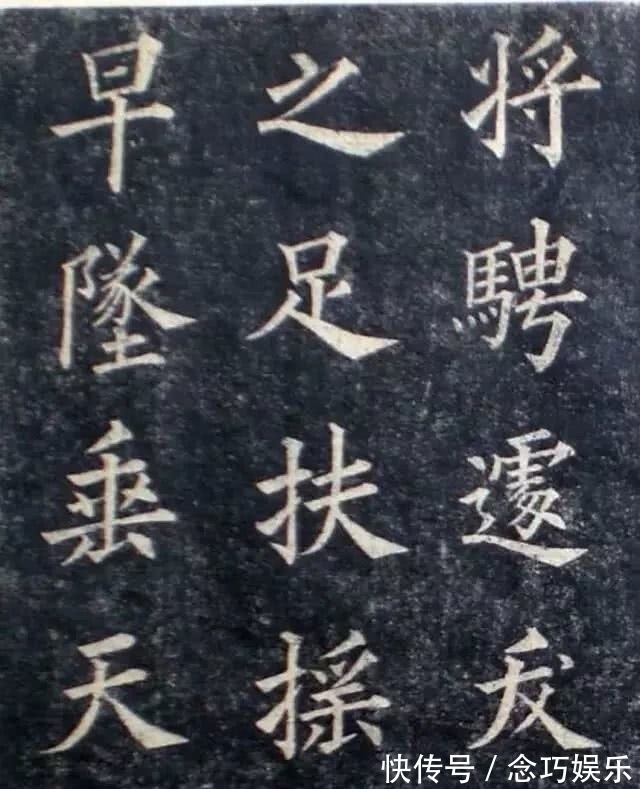 将騁遽
之足扶搖
早墜垂天
快传号 / 念巧娱乐